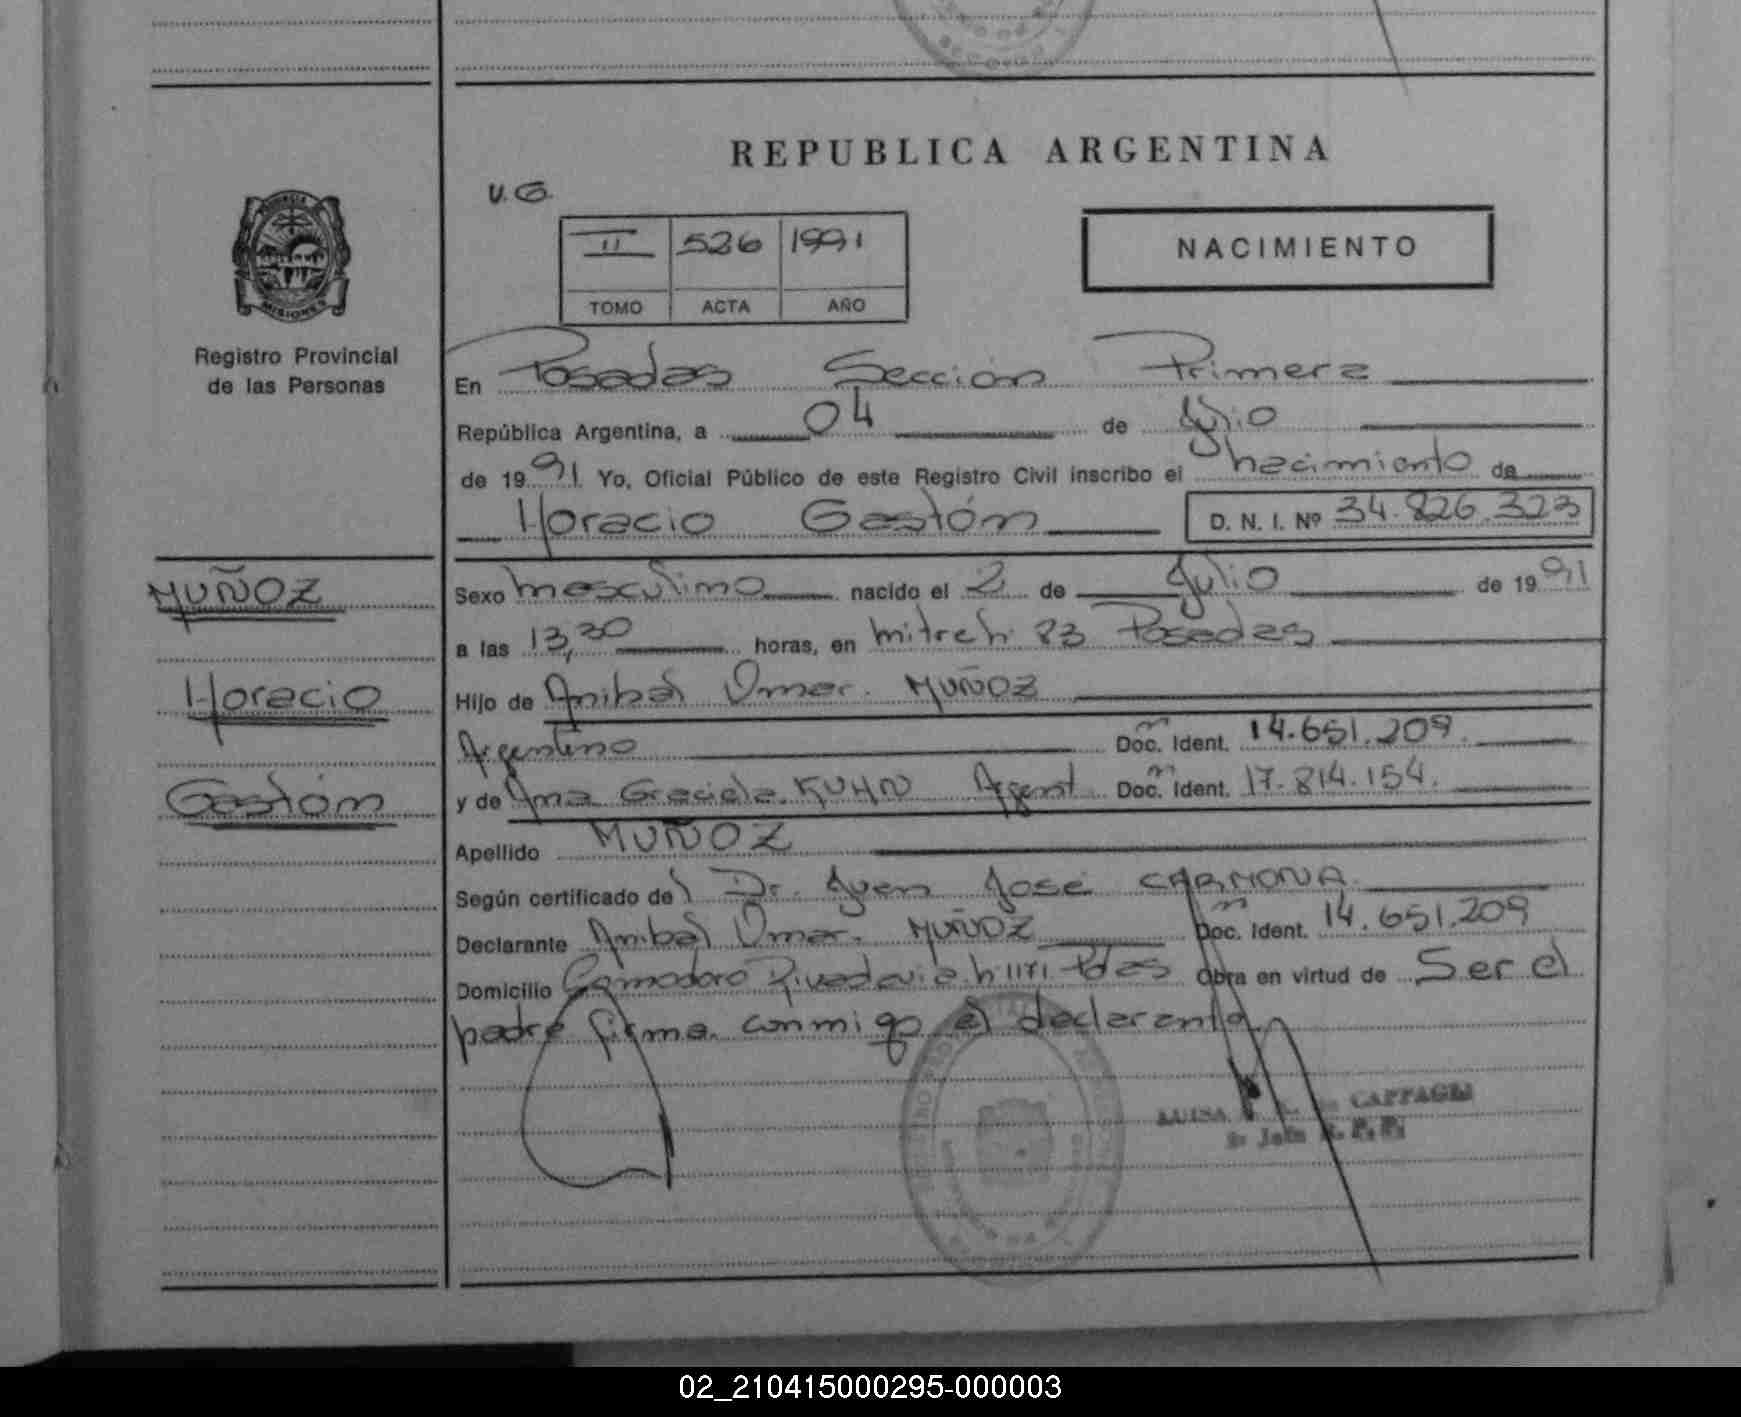 REPUBLICA ARGENTINA
V.G.
II 526 1991
TOMO ACTA AÑO
NACIMIENTO
MISIONES
Registro Provincial
de las Personas
En Posadas Sección Primera
República Argentina, a 04 de Julio
de 1991 Yo, Oficial Público de este Registro Civil inscribo el nacimiento de
Horacio Gastón D. N. I. Nº 34.826.323
MUÑOZ
Sexo masculino nacido el 2 de Julio de 1991
a las 13,30 horas, en mitre h: 83 Posadas
Horacio
Hijo de Anibal Omar. MUÑOZ
Argentino Doc. Ident. 14.651.209.
Gastón
y de Ana Graciela KUHN Argent Doc. Ident. 17.814.154.
Apellido MUÑOZ
Según certificado del Dr. Juan José CARMONA
Declarante Anibal Omar. MUÑOZ Doc. Ident. 14.651.209
Domicilio Comodoro Rivadavia h 1171 Pdas Obra en virtud de Ser el
padre firma conmigo el declarante
LUISA CAPPAGLI
Jefe R. P. P.
02_210415000295-000003